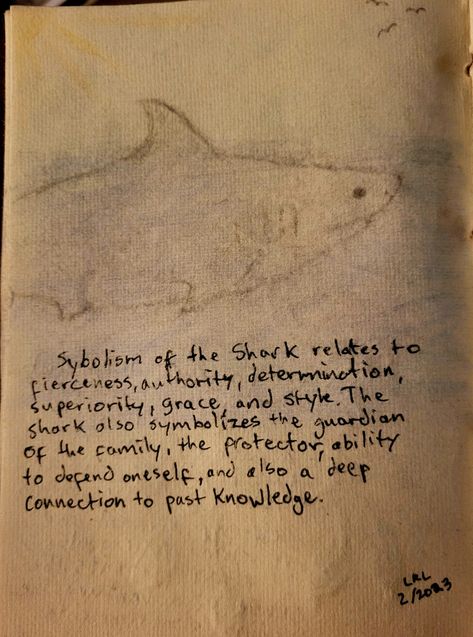 Sybolism of the Shark relates to
fierceness, authority, determination,
superiority, grace, and style. The
shark also symbolizes the guardian
of the family, the protector, ability
to defend oneself, and also a deep
connection to past knowledge.
LRL
2/2023